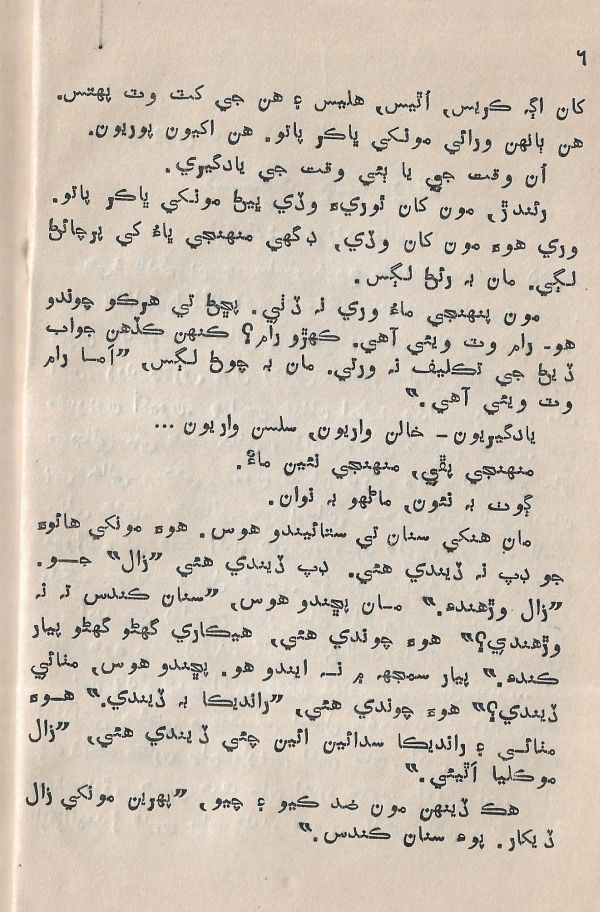 ٦
کان اڳ ڪريس، اُٿيس، هليس ۽ هن جي کٽ وٽ پهتس.
هن ٻانهن ورائي مونکي ڀاڪر پاتو. هن اکيون پوريون.
اُن وقت جي يا ٻئي وقت جي يادگيري.
رئندڙ، مون کان ٿوريءَ وڏي ڀيڻ مونکي ڀاڪر پاتو.
وري هوءَ مون کان وڏي، ڊگهي منهنجي ڀاءُ کي پرچائڻ
لڳي. مان بہ رئڻ لڳس.
مون پنهنجي ماءُ وري نہ ڏٺي. پڇڻ تي هرڪو چوندو
هو۔ رام وٽ ويئي آهي. ڪهڙو رام؟ ڪنهن ڪڏهن جواب
ڏيڻ جي تڪليف نہ ورتي. مان بہ چوڻ لڳس، ”اَمـا رام
وٽ ويئي آهي.“
يادگيريون – خالن واريون، سلسن واريون ...
منهنجي پڦي، منهنجي نئين ماءُ.
ڳوٺ بہ نئون، ماڻهو بہ نوان.
مان هنکي سنان تي ستائيندو هوس. هوءَ مونکي هائوءَ
جو ڊپ نہ ڏيندي هئي. ڊپ ڏيندي هئي ”زال“ جـو.
”زال وڙهندءِ.“ مـان پڇندو هوس، ”سنان ڪندس تہ نہ
وڙهندي؟“ هوءَ چوندي هئي، هيڪاري گهڻو گهڻو پيار
ڪندءِ.“ پيار سمجهہ ۾ نـہ ايندو هو. پڇندو هوس، مٺائي
ڏيندي؟“ هوءَ چوندي هئي، ”رانديڪا بہ ڏيندي.“ هـوءَ
مٺائـي ۽ رانديڪا سدائين ائين چئي ڏيندي هئي، ”زال
موڪليا اَٿيئي.“
هڪ ڏينهن مون ضد ڪيو ۽ چيو، ”پهرين مونکي زال
ڏيکار. پوءِ سنان ڪندس.“